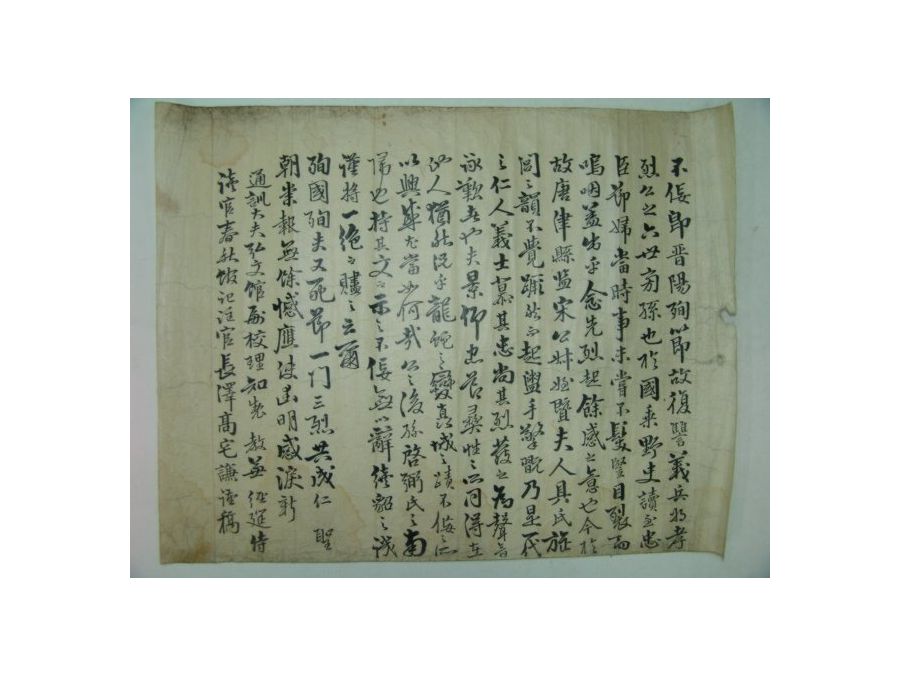 不佞卽晋陽殉節故復讐義兵將孝
烈公之六世旁孫也於國乘野史讀至忠
臣節婦當時事未嘗不髮豎目裂而
嗚咽盖出乎念先烈起餘感之意也今於
故唐津縣監宋公妣曁夫人具氏旌
閭之韻不覺蹶然而起盥手擎翫乃是一代
之仁人義士慕其忠尚其烈發之爲聲音
詠歎者也夫景仰忠節彛性之所同得在
他人猶然況乎龍蛇之變眞城之蹟不佞之所
以興感尤當如何哉公之後孫啓弼氏之南
歸也持其文而示之不佞無以辭續貂之誠
謹將一絶而贐之云爾
殉國殉夫又死節一門三烈共成仁 聖
朝崇報無餘憾應使幽明感淚新
通訓大夫弘文館副校理知製 教兼 經筵侍
讀官春秋館記注官長澤高宅謙謹稿